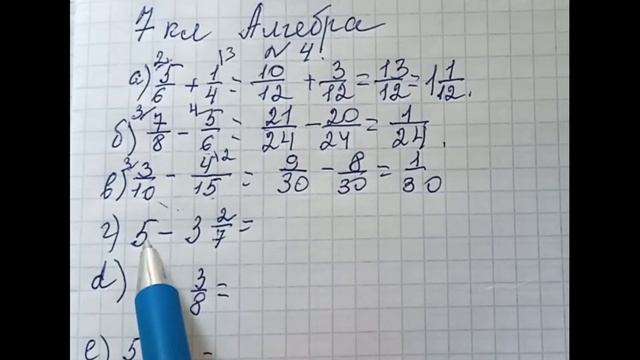 7 кл Алгебра
№ 4.
а) 5/6 + 1/4 = 10/12 + 3/12 = 13/12 = 1 1/12.
б) 7/8 - 5/6 = 21/24 - 20/24 = 1/24.
в) 3/10 - 4/15 = 9/30 - 8/30 = 1/30
г) 5 - 3 2/7 =
d) 3/8 =
е) 5